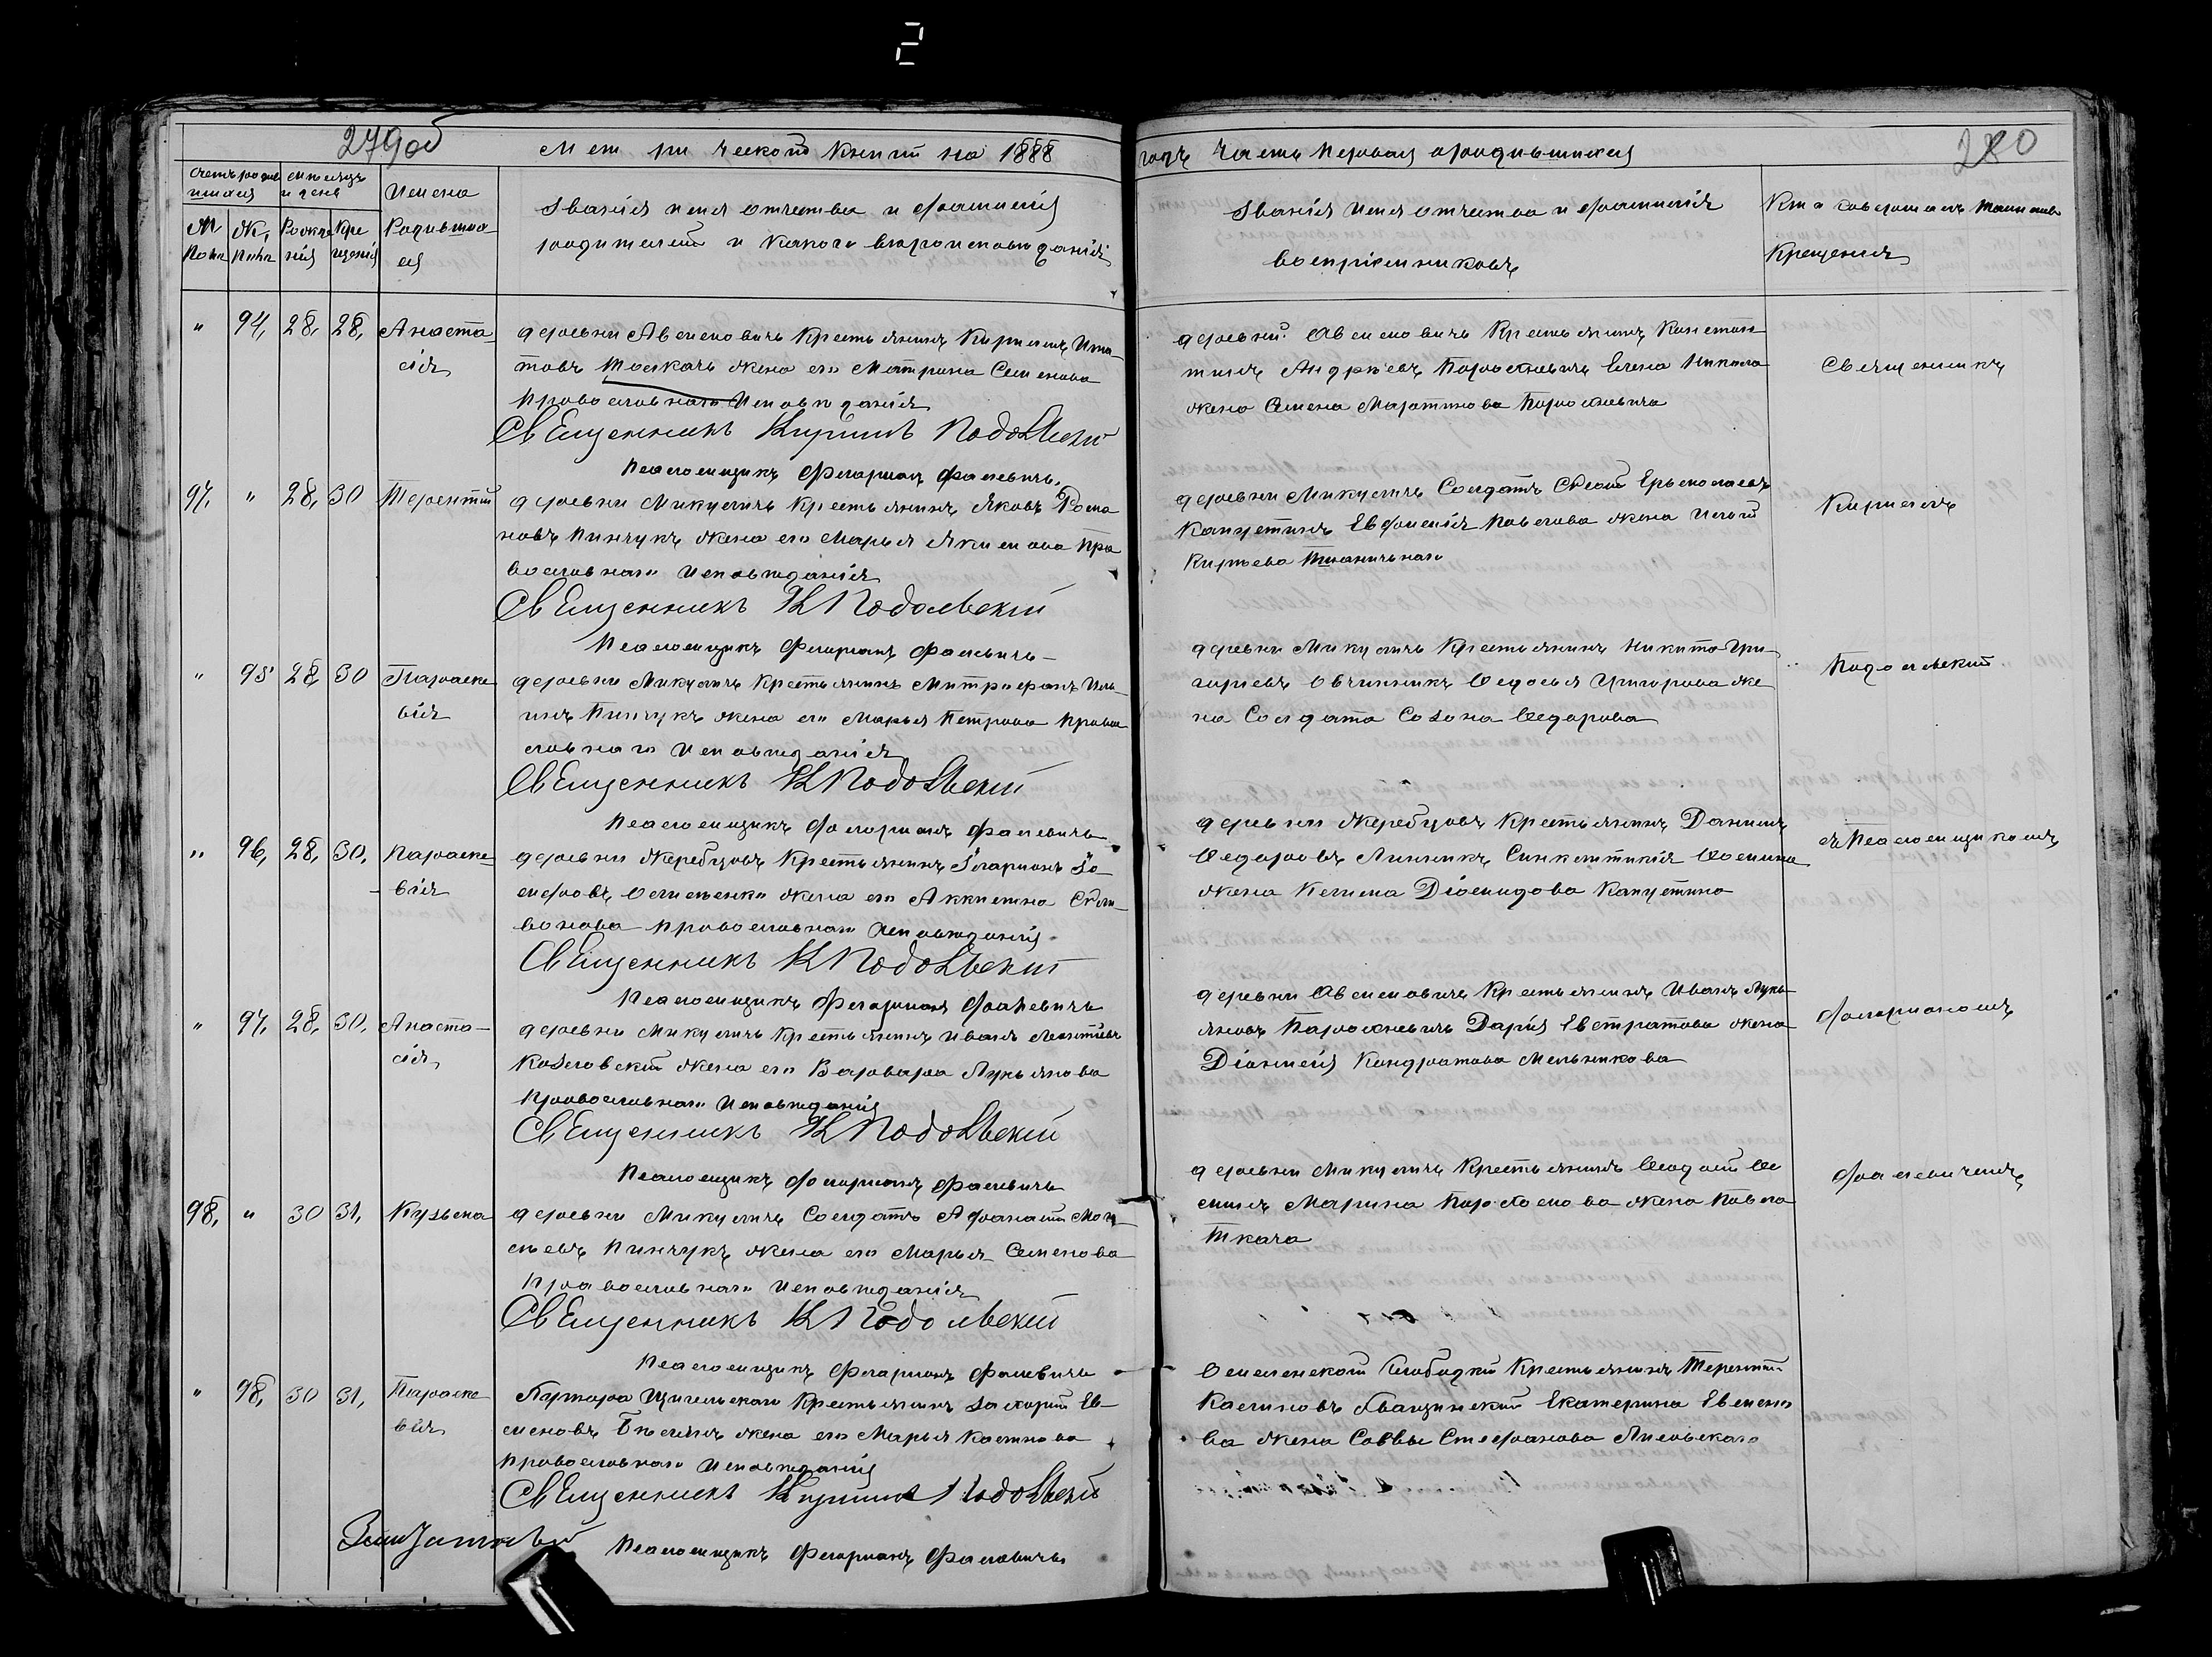 2
279об
280
Метрической книги на 1888
годъ Часть первая о родившихся
Счетъ родив
шихся
Мѣсяцъ
и день
Имена
Родивша
ся
М
Пола
Ж,
Пола
Рожде
нія
Кре
щенія
Званія имя отчество и фамилія
родителей и какого вѣроисповѣданія
Званія имя отчество и фамилія
воспріемниковъ
Кто совершалъ таинство
Крещенія
" 94, 28, 28, Анаста
сія
деревни Авсимовичь Крестьянинъ Кирилъ Игна
товъ Толкачь жена его Матрона Семенова
Православнаго Исповѣданія
Священникъ Кирилъ Подольскій
Псаломщикъ Флоріанъ Фалевичь
деревни Авсимовичь Крестьянинъ Констан
тинъ Андрѣевъ Елена
жена Семена Мартинова
Священникъ
97, " 28, 30 Терентій
деревни Микуличь Крестьянинъ Яковъ Рома
новъ Пинчукъ жена его Марья Якимова Пра
вославнаго Исповѣданія
Священникъ К Подольскій
Псаломщикъ Флоріанъ Фалевичь
деревни Микуличь Солдатъ Ермолаевъ
Капустинъ Евфимія Павлова жена
Кирѣева
Кириломъ
" 95 28, 30 Параске
вія
деревни Микуличь Крестьянинъ Митрофанъ Иль
инъ Пинчукъ жена его Марья Петрова Право
славнаго Исповѣданія
Священникъ К Подольскій
Псаломщикъ Флоріанъ Фалевичь
деревни Микуличь Крестьянинъ Никита Гри
горіевъ Овчинникъ Ѳедосья Григорова же
на Солдата Созона Ѳедорова
Подольскій
" 96, 28, 30, Параске
вія
деревни Жеребцовъ Крестьянинъ Іларіонъ Іо
сифовъ жена его
Православнаго Исповѣданія
Священникъ К Подольскій
Псаломщикъ Флоріанъ Фалевичь
деревни Жеребцовъ Крестьянинъ Даніилъ
Ѳедоровъ Линникъ Синклитикія Ѳомина
жена Клима Діомидова Капустина
съ Псаломщикомъ
" 97, 28, 30, Анаста
сія
деревни Микуличь Крестьянинъ Иванъ Леонтіевъ
Козловскій жена его Варвара Лукьянова
Православнаго Исповѣданія
Священникъ К Подольскій
Псаломщикъ Флоріанъ Фалевичь
деревни Авсимовичь Крестьянинъ Иванъ Лукь
яновъ Дарія Евстратова жена
Діонисія Кондратова Мельникова
Флоріаномъ
98, " 30 31, Кузьма
деревни Микуличь Солдатъ Афанасій Мои
сѣевъ Пинчукъ жена его Марья Семенова
Православнаго Исповѣданія
Священникъ К Подольскій
Псаломщикъ Флоріанъ Фалевичь
деревни Микуличь Крестьянинъ
Марина жена Павла
Ткача
Фалевичемъ
" 98, 30 31, Параске
вія
Крестьянинъ Захарій Ев
сеновъ жена его Марья
Православнаго Исповѣданія
Священникъ Кирилъ Подольскій
Псаломщикъ Флоріанъ Фалевичь
Слободки Крестьянинъ Терентій
Екатерина
ва жена Саввы Стефанова Лисовскаго